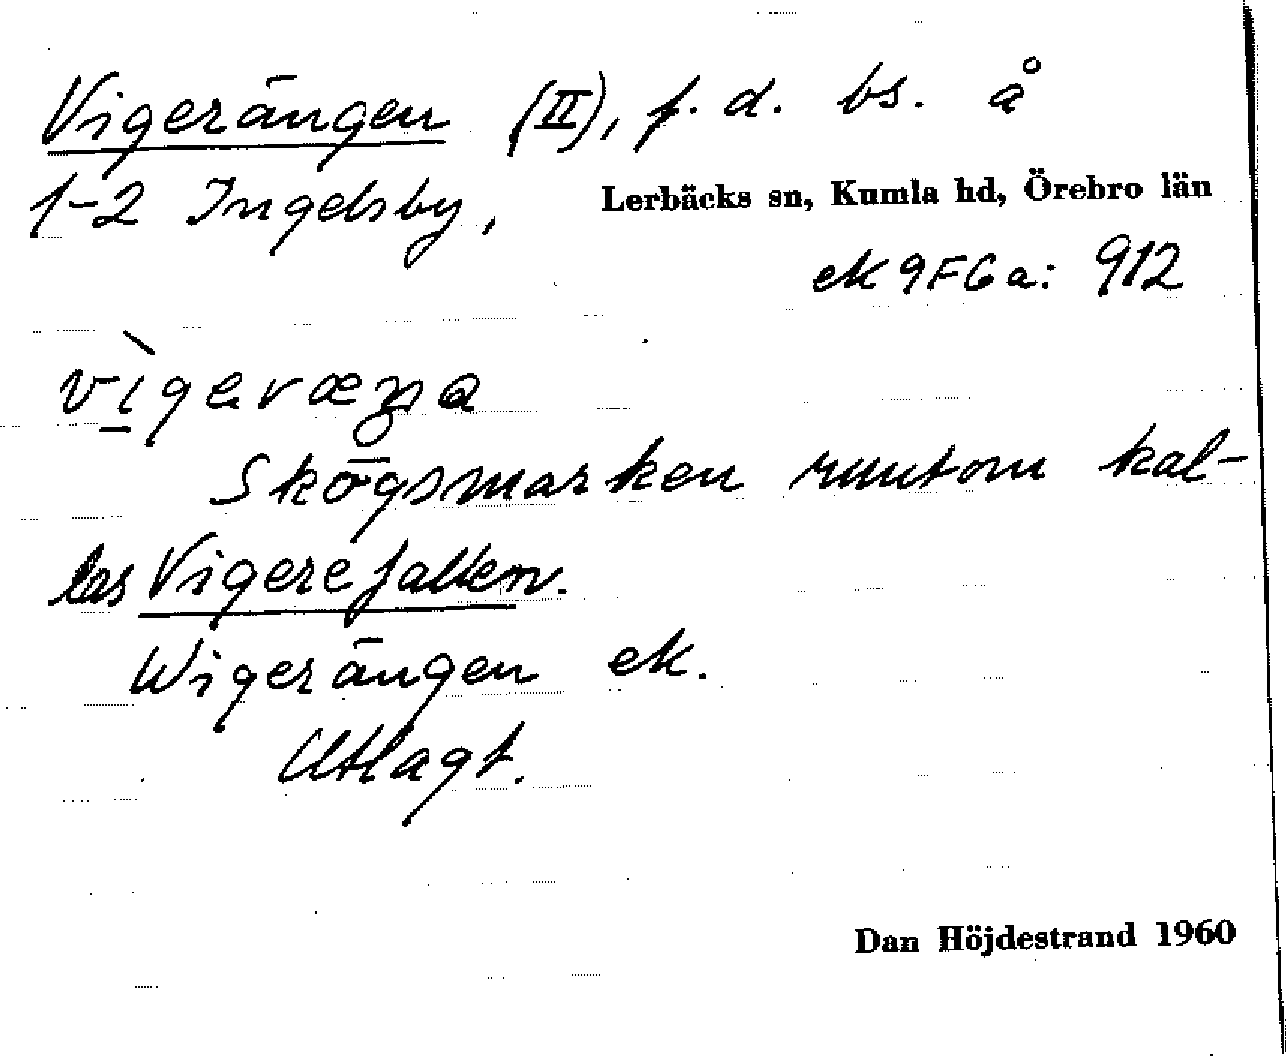 Vigerängen (II), f. d. bs. å
1-2 Ingelsby,
Lerbäcks sn, Kumla hd, Örebro län
ek 9F6a: 912
vìgeræŋa
Skogsmarken runtom kal-
las Vigerefallen.
Wigerängen ek.
Utlagt.
Dan Höjdestrand 1960